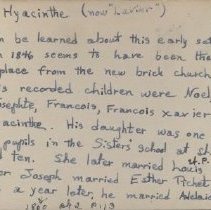 Hyacinthe (now "Lavier")
n be learned about this early set
n 1846 seems to have been the
place from the new brick church
s recorded children were Noel
isephte, Francois, Francois xavier
yacinthe. His daughter was one
pupils in the Sisters' school at St
d ten. She later married Louis
St.P.
er Joseph married Esther Picket
a year later, he married Adelaid
1860 ph 2 p. 113